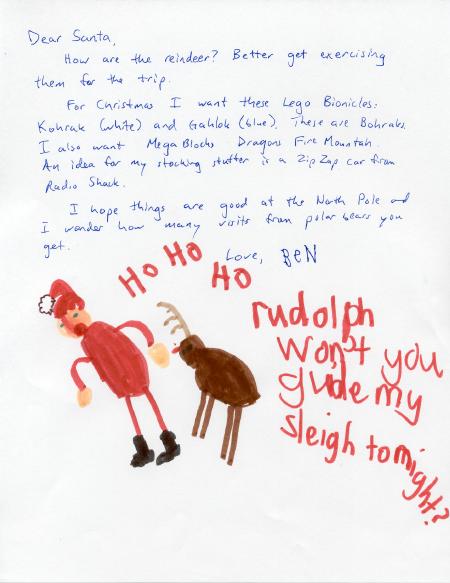 Dear Santa,
How are the reindeer? Better get exercising
them for the trip.
For Christmas I want these Lego Bionicles:
Kohrak (white) and Gahlok (blue). These are Bohroks.
I also want MegaBlocks Dragons Fire Mountain.
An idea for my stocking stuffer is a Zip Zap car from
Radio Shack.
I hope things are good at the North Pole and
I wonder how many visits from polar bears you
get.
Love, BeN
HO HO HO
rudolph
won't you
guide my
sleigh tonight?